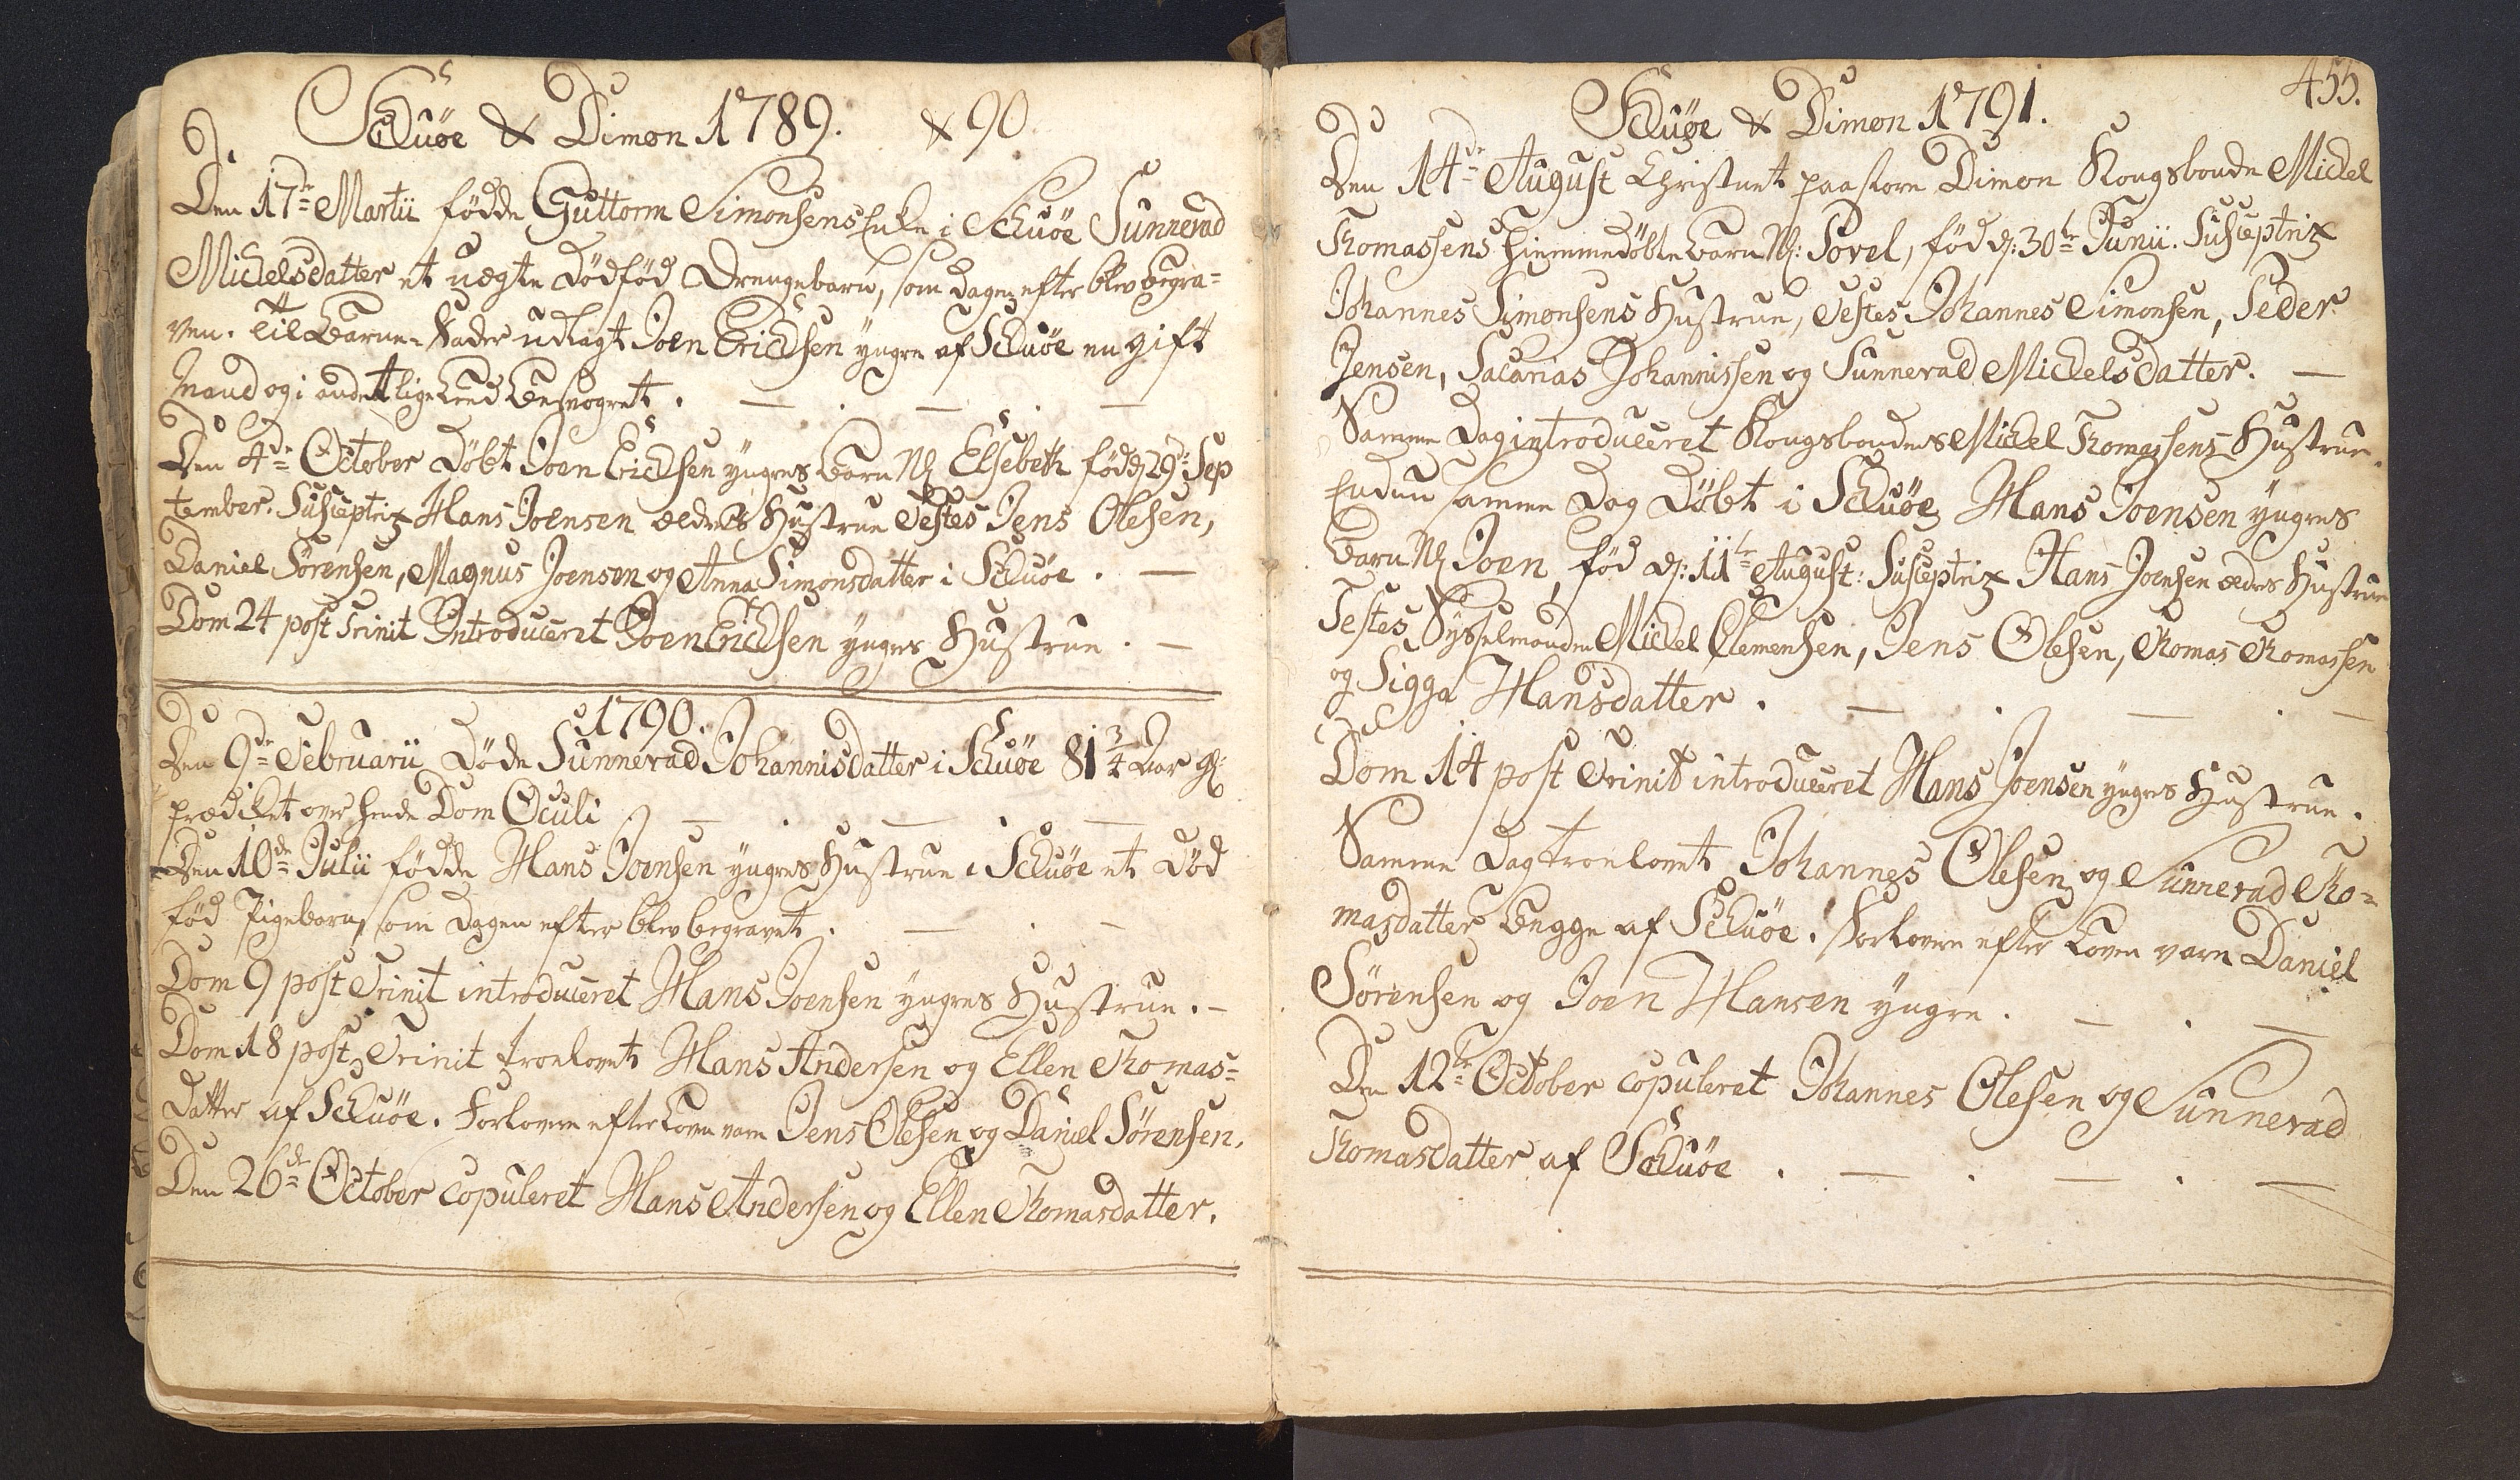 Schuöe & Dimon 1789. & 90.
Den 17de Martii fødde Guttorm Simonsens Enke i Schuöe Sunnevad
Michelsdatter et uægte dödföd Drengebarn, som dagen efter blev begra=
ven. Til Barne-Fader udlagt Joen Erichsen yngre af Schuöe en gift
Mand og i andet lige Leed besvogret.
Den 4de October döbt Joen Erichsen yngres Barn N: Elsebeth föd d: 29de Sep
tember. Susceptrix Hans Joensen ældres Hustrue Testes Jens Olesen,
Daniel Sörensen, Magnus Joensen og Anna Simonsdatter i Schuöe.
Dom 24 post Trinit Introduceret Joen Erichsen yngres Hustrue.
1790.
Den 9de Februarii döde Sunnevad Johannisdatter i Schuöe 81 3/4 Aar gl:
prædiket over hende Dom Oculi
Den 10de Julii födde Hans Joensen yngres Hustrue i Schuöe et död
föd Pigebarn, som dagen efter blev begravet.
Dom 9 post Trinit introduceret Hans Joensen yngres Hustrue.
Dom 18 post Trinit troelovet Hans Andersen og Ellen Thomas=
datter af Schuöe. Forlovere efter Loven vare Jens Olesen og Daniel Sörensen.
Den 26de October copuleret Hans Andersen og Ellen Thomasdatter.
455.
Schuøe & Dimon 1791.
Den 14de August Christnet paa store Dimon Kongsbonde Michel
Thomassens hiemmedöbte Barn N: Povel, föd d: 30te Junii. Susceptrix
Johannes Simonsens Hustrue, Testes Johannes Simonsen, Peder
Jensen, Sacarias Johannissen og Sunnevad Michelsdatter.
Samme Dag introduceret Kongsbondens Michel Thomassens Hustrue.
Endnu samme Dag döbt i Schuöe Hans Joensen yngres
Barn N: Joen, föd d: 11te August: Susceptrix Hans Joensen ældres Hustrue
Testes Sysselmanden Michel Clemensen, Jens Olesen, Thomas Thomassen
og Sigga Hansdatter.
Dom 14 post Trinit introduceret Hans Joensen yngres Hustrue.
Samme Dag troelovet Johannes Olesen og Sunnevad Tho=
masdatter begge af Schuöe. Forlovere efter Loven vare Daniel
Sörensen og Joen Hansen yngre.
Den 12te October copuleret Johannes Olesen og Sunnevad
Thomasdatter af Schuöe.